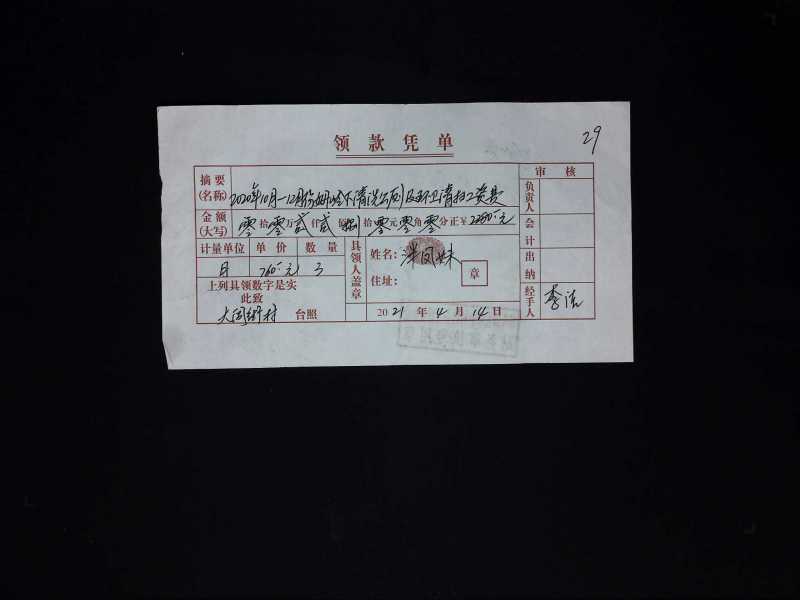 领款凭单
29
摘要
(名称) 2020年10月—12月份 清洗公厕及环卫清扫工资
金额
(大写) 零拾零万贰仟贰佰 拾零元零角零分正￥
计量单位 单价 数量
月 760元 3
上列具领数字是实
此致
大周街村 台照
具领人盖章
姓名: 凤妹
住址:
章
2021年4月14日
审核
负责人
会计
出纳
经手人 李洁